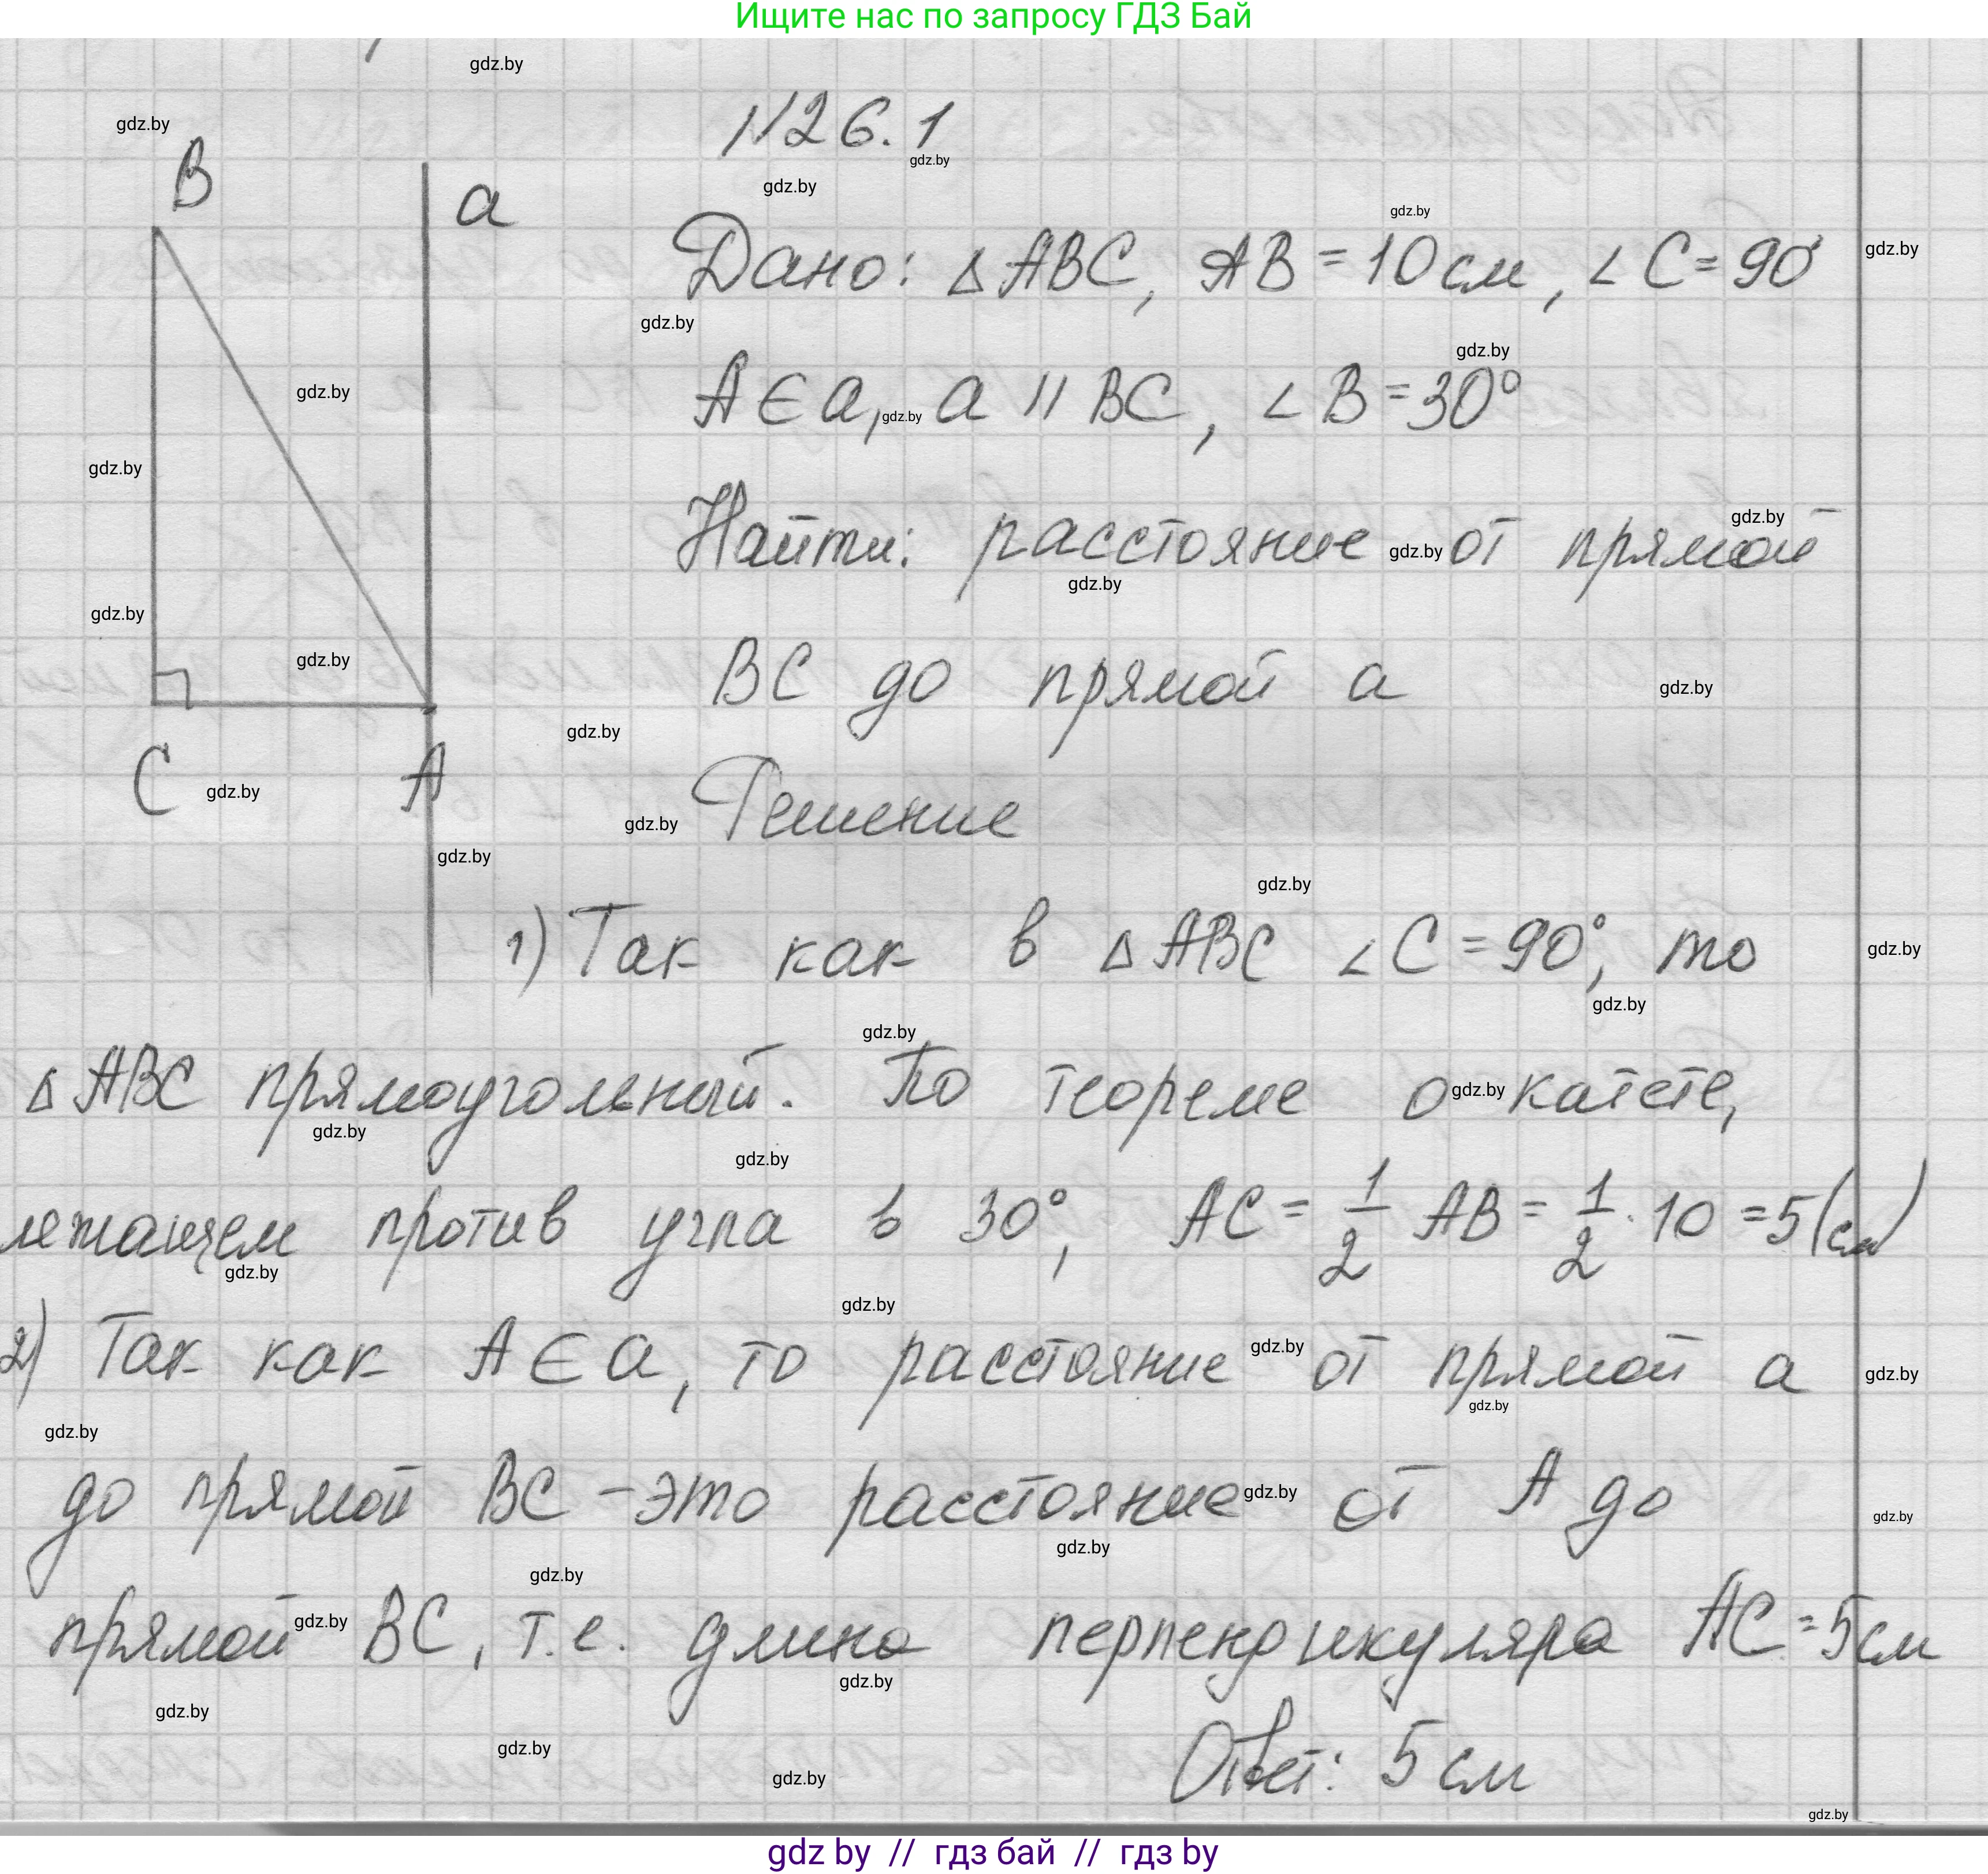 Ищите нас по запросу ГДЗ Бай
№26.1
B
a
Дано: △ABC, AB = 10 см, ∠C = 90°
A ∈ a, a || BC, ∠B = 30°
Найти: расстояние от прямой
BC до прямой a
C A
Решение
1) Так как в △ABC ∠C = 90°, то
△ABC прямоугольный. По теореме о катете,
лежащем против угла в 30°, AC = 1/2 AB = 1/2 · 10 = 5 (см)
2) Так как A ∈ a, то расстояние от прямой a
до прямой BC – это расстояние от A до
прямой BC, т.е. длина перпендикуляра AC = 5 см
Ответ: 5 см
gdz by // гдз бай // гдз by